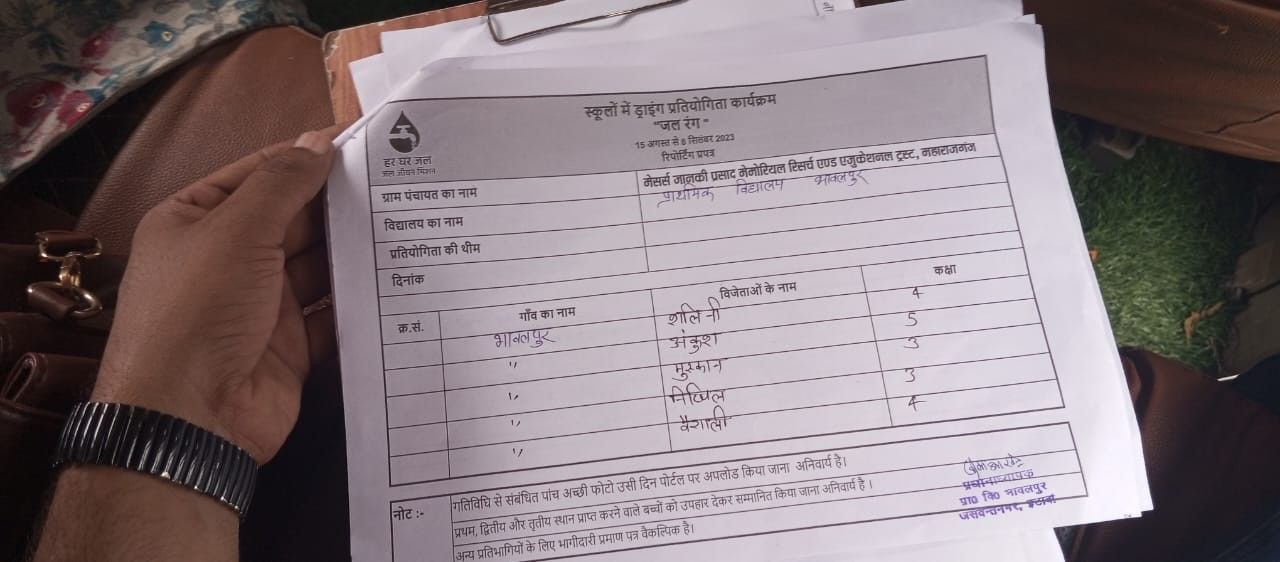 स्कूलों में ड्राइंग प्रतियोगिता कार्यक्रम
"जल रंग"
15 अगस्त से 8 सितंबर 2023
रिपोर्टिंग प्रपत्र
हर घर जल
जल जीवन मिशन
मेसर्स जानकी प्रसाद मेमोरियल रिसर्च एण्ड एजुकेशनल ट्रस्ट, महाराजगंज
ग्राम पंचायत का नाम प्राथमिक विद्यालय भावलपुर
विद्यालय का नाम
प्रतियोगिता की थीम
दिनांक
क्र.सं. गाँव का नाम विजेताओं के नाम कक्षा
भावलपुर शालिनी 4
" अंकुश 5
" मुस्कान 3
" निखिल 3
" वैशाली 4
नोट :- गतिविधि से संबंधित पांच अच्छी फोटो उसी दिन पोर्टल पर अपलोड किया जाना अनिवार्य है।
प्रथम, द्वितीय और तृतीय स्थान प्राप्त करने वाले बच्चों को उपहार देकर सम्मानित किया जाना अनिवार्य है।
अन्य प्रतिभागियों के लिए भागीदारी प्रमाण पत्र वैकल्पिक है।
प्रधानाध्यापक
प्रा0 वि0 भावलपुर
जसवन्तनगर, इटावा